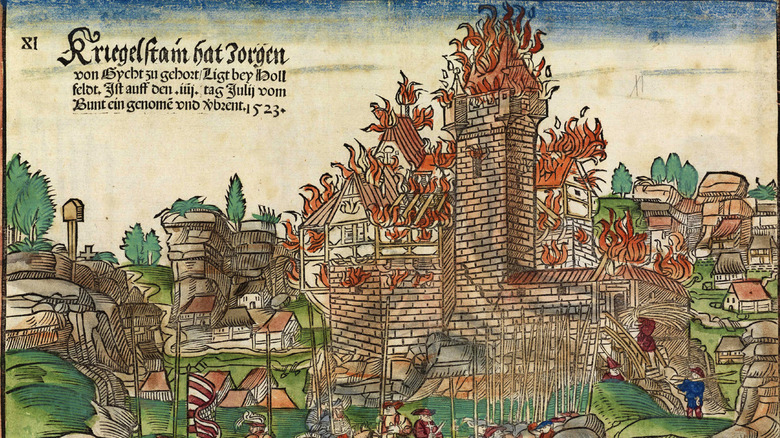 XI
Kriegelstain hat Jorgen
von Gycht zu gehort / Ligt bey Holl
feldt. Ist auff den .iiij. tag Julij vom
Bunt ein genomē vnd Vbrent. 1523.